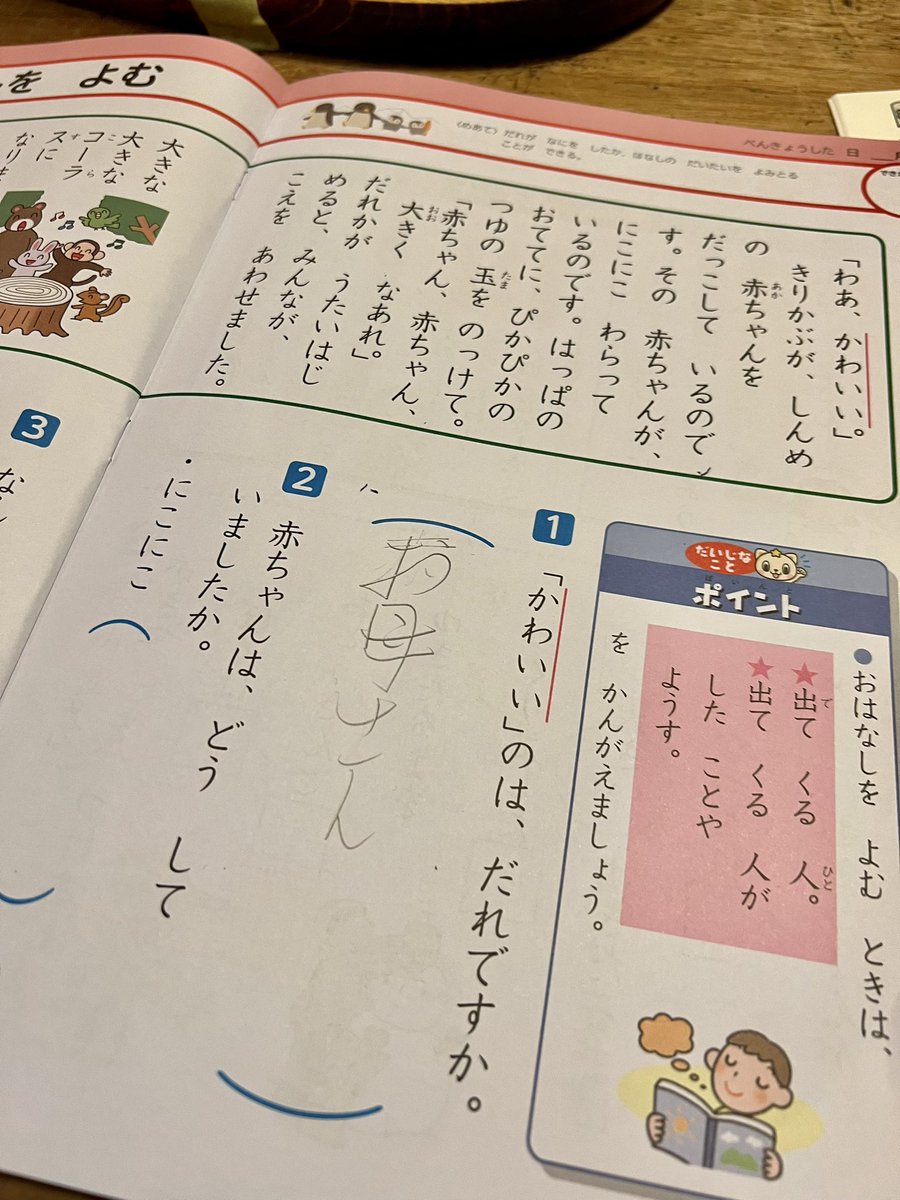 を よむ
〈めあて〉だれが なにを したか、はなしの だいたいを よみとる
ことが できる。
べんきょうした 日
「わあ、かわいい」。
きりかぶが、しんめ
の 赤ちゃんを
だっこして いるので
す。その 赤ちゃんが、
にこにこ わらって
いるのです。はっぱの
おててに、ぴかぴかの
つゆの 玉を のっけて。
「赤ちゃん、赤ちゃん、
大きく なあれ。」
だれかが うたいはじ
めると、 みんなが、
こえを あわせました。
大きな
大きな
コーラ
スに
なりま
だいじな
こと
ポイント
●おはなしを よむ ときは、
★出て くる 人。
★出て くる 人が
した ことや
ようす。
を かんがえましょう。
1
「かわいい」のは、だれですか。
お母さん
2
赤ちゃんは、どう して
いましたか。
・にこにこ
3